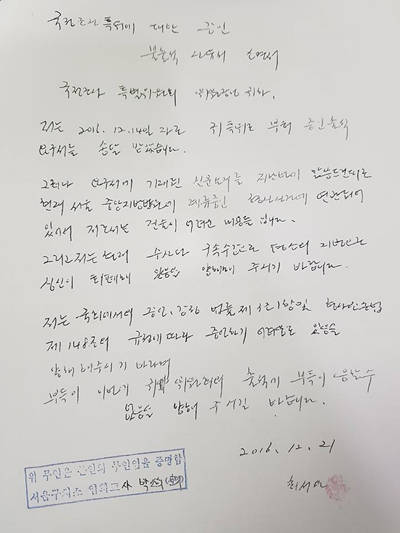 국정조사 특위에 대한 증인
불출석 사유서 소명서
국정조사 특별위원회 위원장님 귀하.
저는 2016. 12. 14일 자로 귀 특위로 부터 증인출석
요구서를 송달 받았습니다.
그러나 요구서에 기재된 신문요지를
현재 서울 중앙지방법원에 계류중인 형사사건에 연관되어
있어서 저로서는 진술이 어려운 내용들 입니다.
그리고 저는 현재 수사와 구속수감으로 평소의 지병으로
심신이 피폐해 있음을 양해하여 주시기 바랍니다.
저는 국회에서의 증언, 감정 법률 제3조 1항 및 형사소송법
제 148조의 규정에 따라 증언하기 어려움이 있음을
양해해 주시기 바라며
부득이 이번 귀 위원회의 출석에 부득이 응할 수
없음을 양해 주시길 바랍니다.
2016. 12. 21
최서원
위 무인은 본인의 무인임을 증명함
서울구치소 교 박